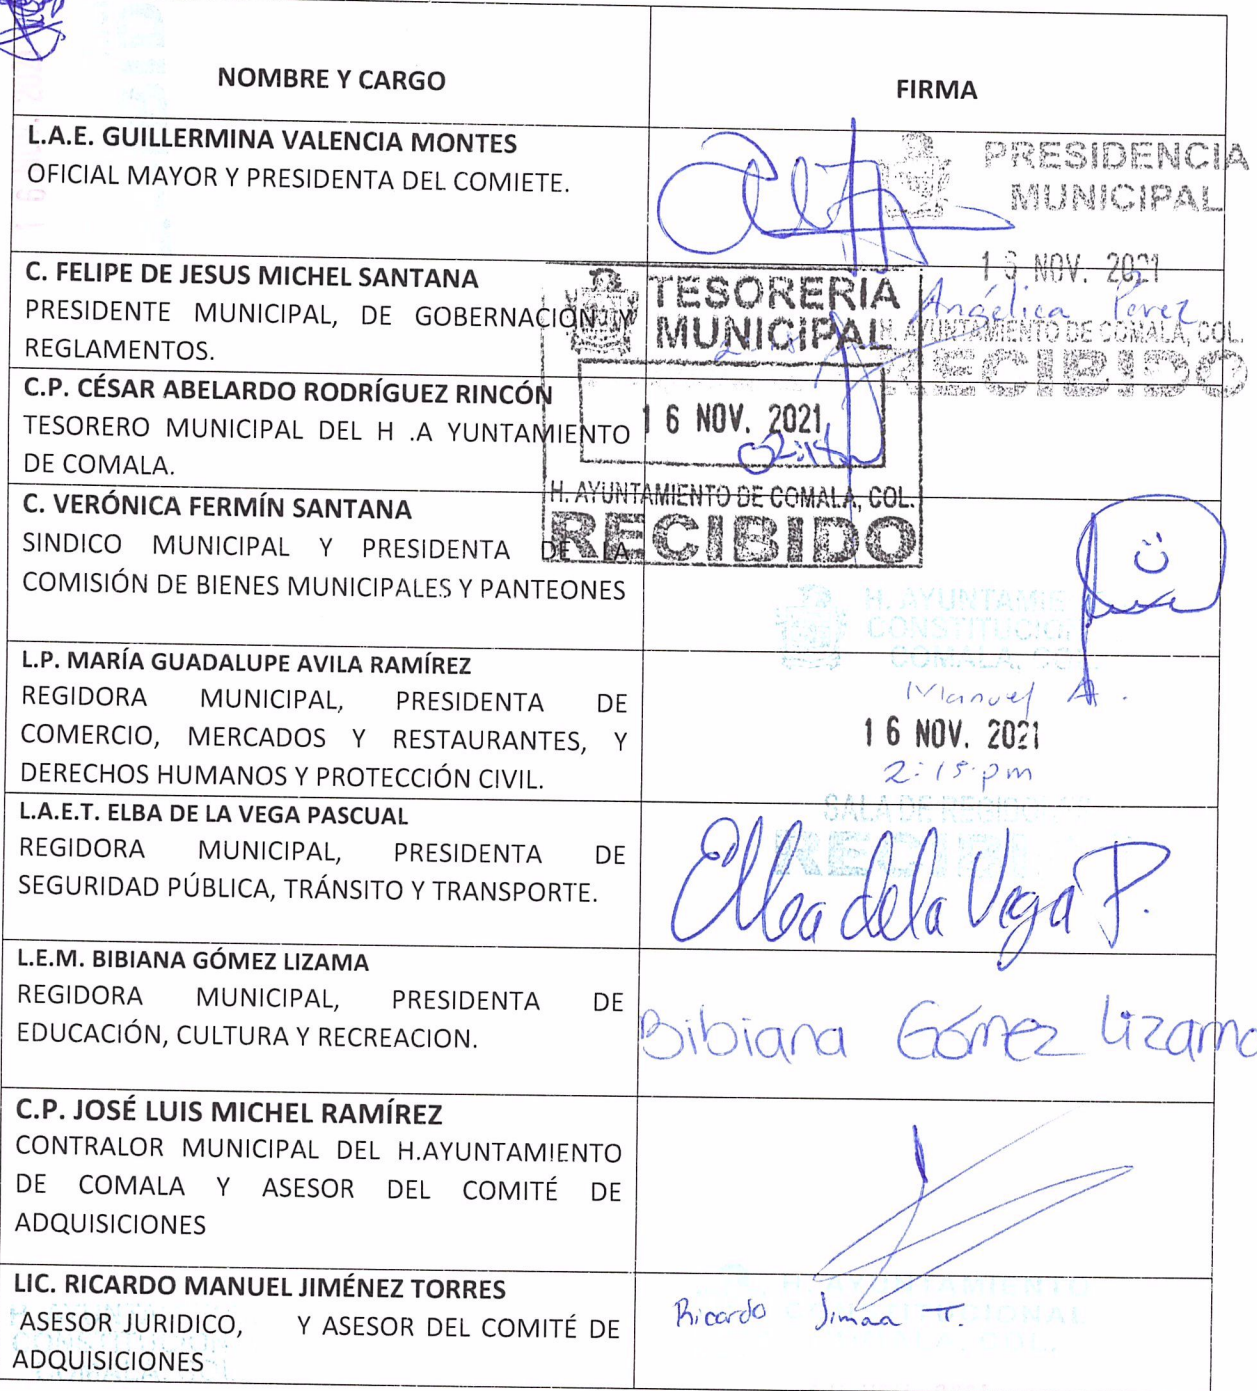 NOMBRE Y CARGO
FIRMA
L.A.E. GUILLERMINA VALENCIA MONTES
OFICIAL MAYOR Y PRESIDENTA DEL COMIETE.
PRESIDENCIA
MUNICIPAL
16 NOV. 2021
Angélica Pérez
H. AYUNTAMIENTO DE COMALA, COL.
RECIBIDO
C. FELIPE DE JESUS MICHEL SANTANA
PRESIDENTE MUNICIPAL, DE GOBERNACIÓN Y
REGLAMENTOS.
TESORERIA
MUNICIPAL
16 NOV. 2021
H. AYUNTAMIENTO DE COMALA, COL.
RECIBIDO
C.P. CÉSAR ABELARDO RODRÍGUEZ RINCÓN
TESORERO MUNICIPAL DEL H .A YUNTAMIENTO
DE COMALA.
C. VERÓNICA FERMÍN SANTANA
SINDICO MUNICIPAL Y PRESIDENTA DE LA
COMISIÓN DE BIENES MUNICIPALES Y PANTEONES
H. AYUNTAMIE
CONSTITUCION
COMALA, CO
L.P. MARÍA GUADALUPE AVILA RAMÍREZ
REGIDORA MUNICIPAL, PRESIDENTA DE
COMERCIO, MERCADOS Y RESTAURANTES, Y
DERECHOS HUMANOS Y PROTECCIÓN CIVIL.
Manuel A.
16 NOV. 2021
2:15 pm
SALA DE REGIDO
RECIBI
L.A.E.T. ELBA DE LA VEGA PASCUAL
REGIDORA MUNICIPAL, PRESIDENTA DE
SEGURIDAD PÚBLICA, TRÁNSITO Y TRANSPORTE.
Elba de la Vega P.
L.E.M. BIBIANA GÓMEZ LIZAMA
REGIDORA MUNICIPAL, PRESIDENTA DE
EDUCACIÓN, CULTURA Y RECREACION.
Bibiana Gómez Lizama
C.P. JOSÉ LUIS MICHEL RAMÍREZ
CONTRALOR MUNICIPAL DEL H.AYUNTAMIENTO
DE COMALA Y ASESOR DEL COMITÉ DE
ADQUISICIONES
LIC. RICARDO MANUEL JIMÉNEZ TORRES
ASESOR JURIDICO, Y ASESOR DEL COMITÉ DE
ADQUISICIONES
Ricardo T.